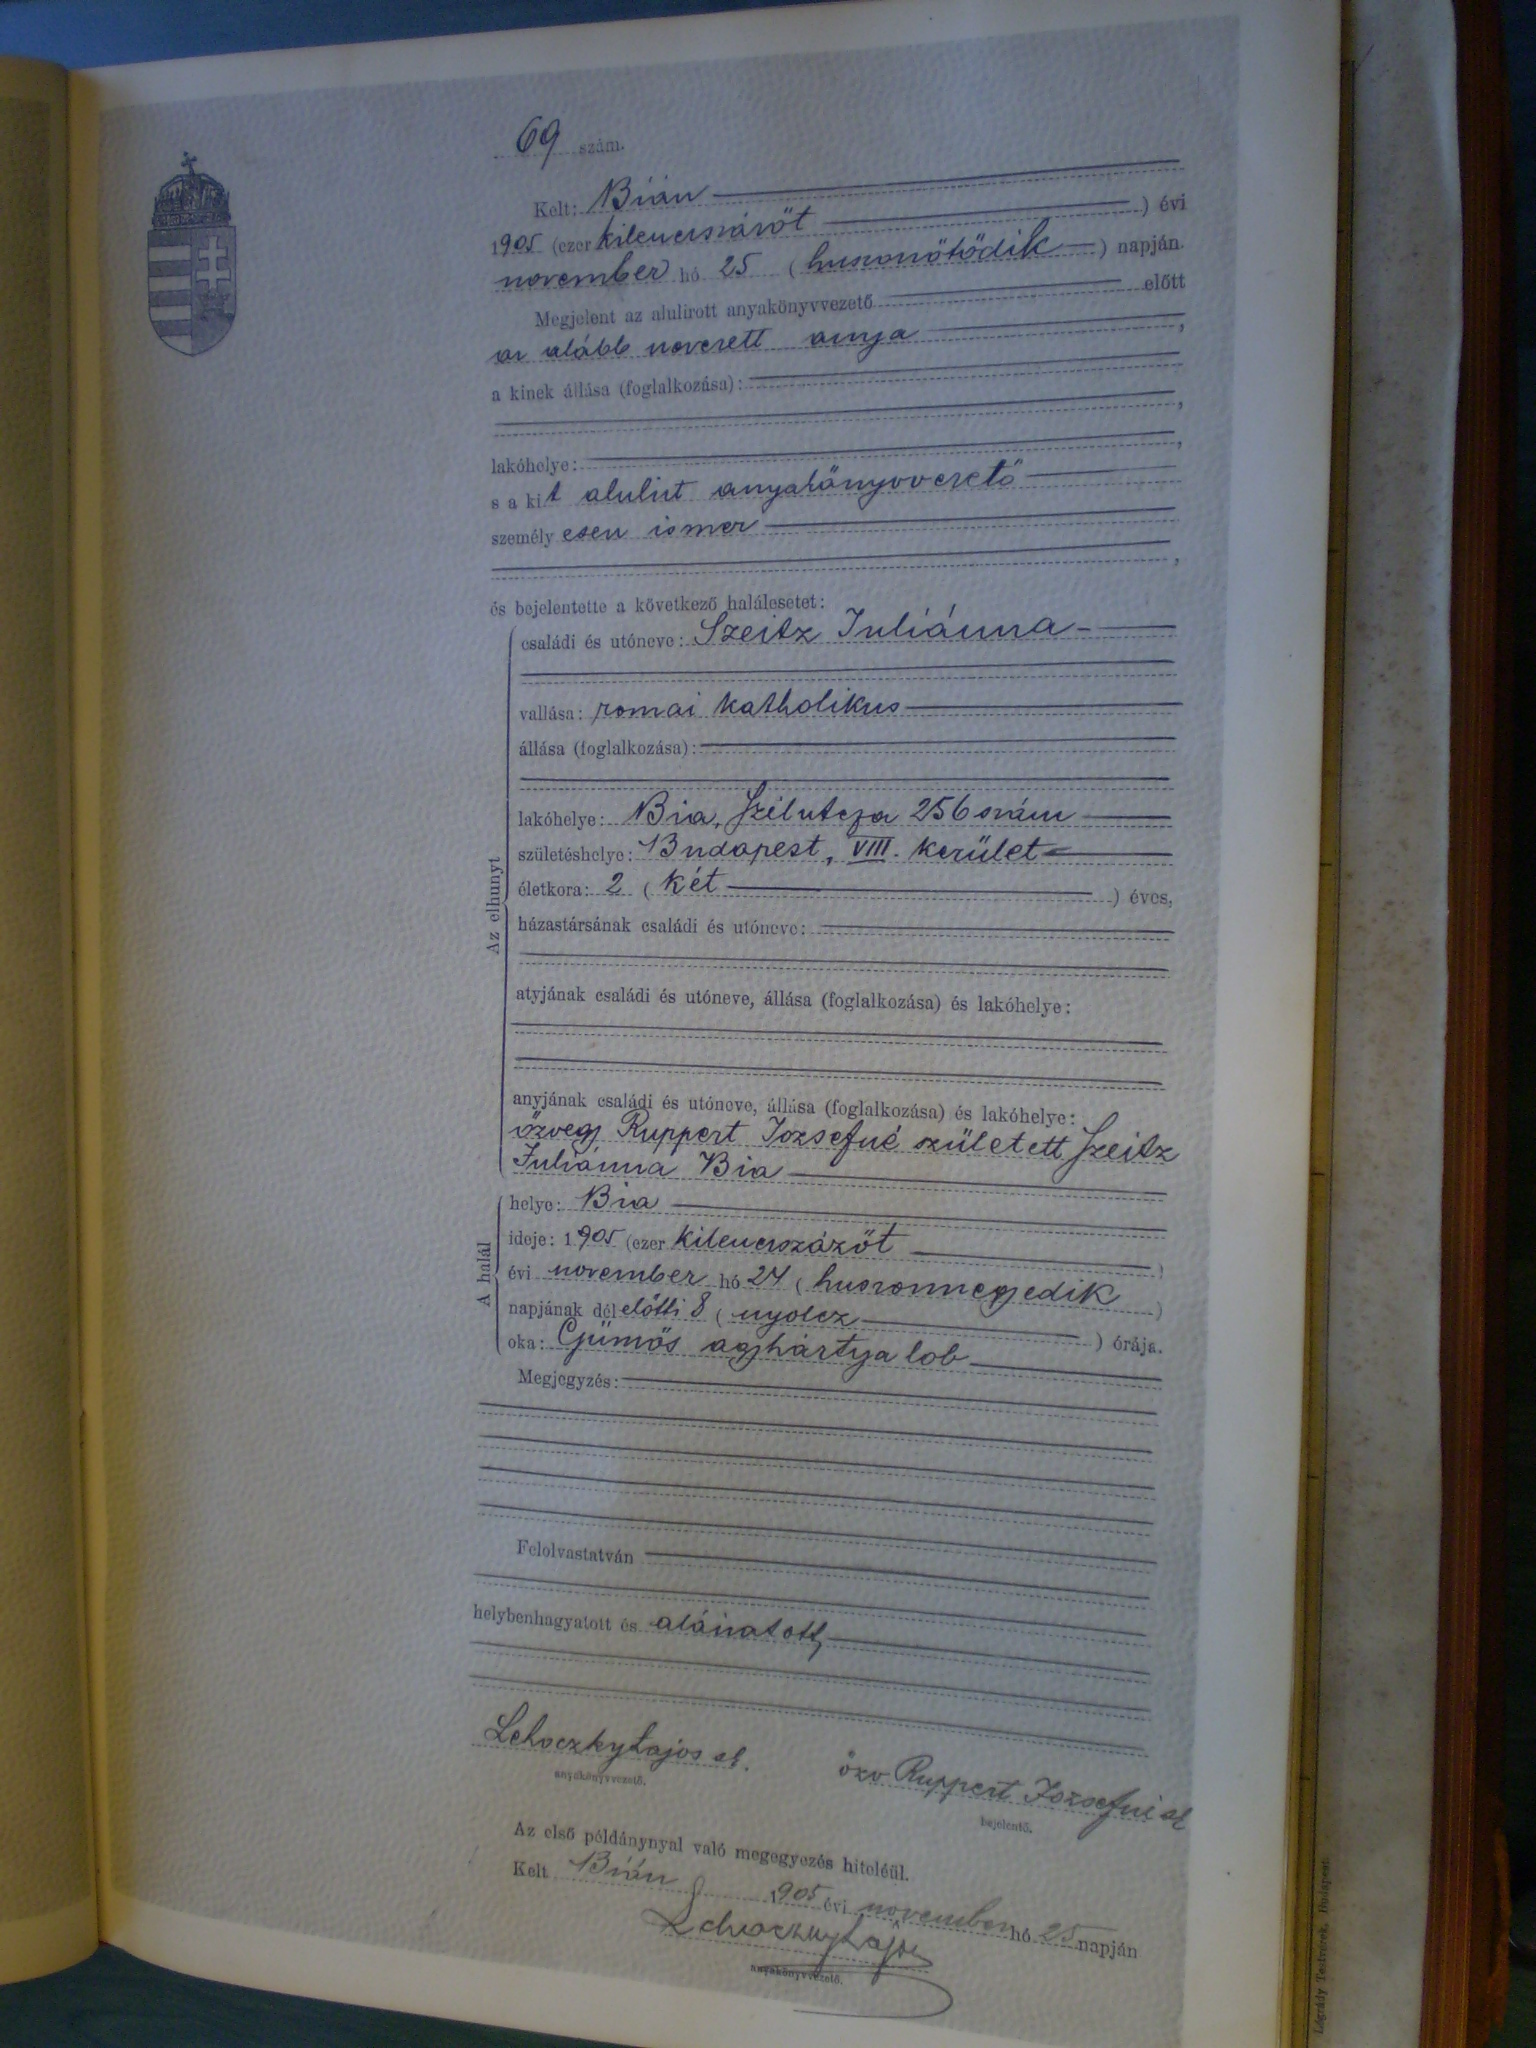 69 szám.
Kelt: Bián
1905 (ezer kilenczszázöt ) évi
november hó 25 (huszonötödik ) napján.
Megjelent az alulirott anyakönyvvezető előtt
az alább nevezett anyja ,
a kinek állása (foglalkozása):
,
lakóhelye: ,
s a kit alulirt anyakönyvvezető
személyesen ismer
,
és bejelentette a következő halálesetet:
Az elhunyt
családi és utóneve: Szeitz Juliánna
vallása: romai katholikus
állása (foglalkozása):
lakóhelye: Bia, Szélutcza 256 szám
születéshelye: Budapest, VIII. kerület
életkora: 2 (két ) éves,
házastársának családi és utóneve:
atyjának családi és utóneve, állása (foglalkozása) és lakóhelye:
anyjának családi és utóneve, állása (foglalkozása) és lakóhelye:
özvegy Ruppert Jozsefné született Szeitz
Juliánna Bia
A halál
helye: Bia
ideje: 1905 (ezer kilenczszázöt )
évi november hó 24 (huszonnegyedik )
napjának délelőtti 8 (nyolcz ) órája.
oka: Gümős agyhártya lob
Megjegyzés:
Felolvastatván
helybenhagyatott és aláiratott,
Lehoczky Lajos sk.
anyakönyvvezető.
özv Ruppert Jozsefné sk
bejelentő.
Az első példánynyal való megegyezés hiteléül.
Kelt Bián 1905 évi november hó 25 napján
Lehoczky Lajos
anyakönyvvezető.
Légrády Testvérek, Budapest.